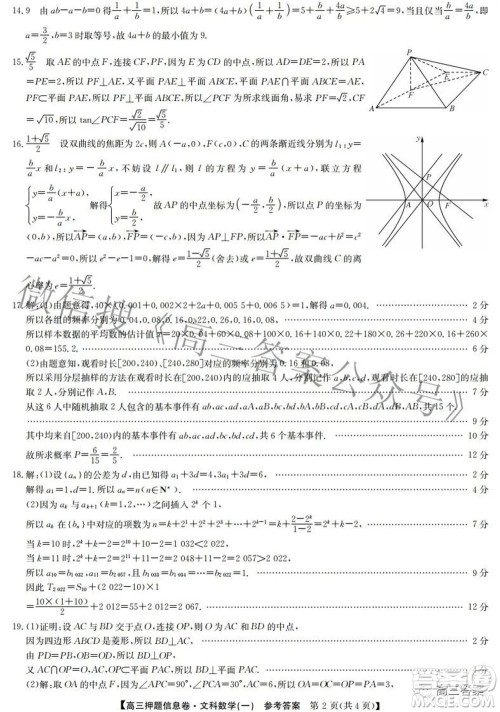 14.9　由ab-a-b=0得1/a+1/b=1,所以4a+b=(4a+b)(1/a+1/b)=5+b/a+4a/b≥5+2√4=9,当且仅当b/a=4a/b,即
a=3/2,b=3时取等号,故4a+b的最小值为9.
15.√5/5　取AE的中点F,连接CF,PF,因为E为CD的中点,所以DE=PD=2,所以PA
=PE=2,所以PF⊥AE,又平面PAE⊥平面ABCE,平面PAE∩平面ABCE=AE,
所以PF⊥平面ABCE,所以∠PCF为所求线面角,易求PF=√2,CF=
√10,所以tan∠PCF=√2/√10=√5/5.
P
C
E
F
A
B
16.(1+√5)/2　设双曲线的焦距为2c,则A(-a,0),F(c,0),C的两条渐近线分别为l₁:y=
b/a x和l₂:y=-b/a x,不妨设l∥l₁,则l的方程为y=b/a(x+a),联立方程
{y=b/a(x+a) y=-b/a x,解得{x=-a/2 y=b/2,故AP的中点坐标为(-a/2,b/2),所以点P的坐标为
(0,b),所以AP=(a,b),FP=(-c,b),因为AP⊥FP,所以AP·FP=-ac+b²=c²
-ac-a²=0,所以e²-e-1=0,解得e=(1-√5)/2(舍去)或e=(1+√5)/2,所以双曲线C的离
心率为e=(1+√5)/2.
P
A
O
F
x
17.解:(1)由题意得,40×(0.001+0.002×2+2a+0.005 5+0.006 5)=1,解得a=0.004. 2分
所以各组的频率分别为0.04,0.08,0.16,0.22,0.26,0.16,0.08. 4分
所以样本数据的平均数的估计值=20×0.04+60×0.08+100×0.16+140×0.22+180×0.26+220×0.16+260
×0.08=155.2. 6分
(2)由题意,观看时长[200,240),[240,280]对应的频率分别为0.16和0.08,
所以采用分层抽样的方法在观看时长在[200,240)内的应抽取4人,分别记作a,b,c,d,在[240,280]内的应抽
取2人,分别记作A,B. 7分
从这6人中随机抽取2人包含的基本事件有ab,ac,ad,aA,aB,bc,bd,bA,bB,cd,cA,cB,dA,dB,AB,共15个.
9分
其中均来自[200,240)内的基本事件有ab,ac,ad,bc,bd,cd,共6个基本事件. 10分
故所求概率P=6/15=2/5. 12分
18.解:(1)设{aₙ}的公差为d,由已知得a₁+3d=4,3a₁+3d=6. 2分
解得a₁=1,d=1.所以aₙ=n(n∈N*). 4分
(2)因为aₖ与aₖ₊₁(k=1,2,…)之间插入2ᵏ个1,
所以aₖ在{bₙ}中对应的项数为n=k+2¹+2²+2³+…+2ᵏ⁻¹=k+(2-2ᵏ)/(1-2)=2ᵏ+k-2. 6分
当k=10时,2ᵏ+k-2=2¹⁰+10-2=1 032<2 022,
当k=11时,2ᵏ+k-2=2¹¹+11-2=2 048+11-2=2 057>2 022,
所以a₁₀=b₁ ₀₃₂,a₁₁=b₂ ₀₅₇,且b₁ ₀₃₃=b₁ ₀₃₄=…=b₂ ₀₂₂=1. 9分
因此T₂ ₀₂₂=S₁₀+(2 022-10)×1
=10×(1+10)/2+2 012=55+2 012=2 067. 12分
19.(1)证明:设AC与BD交于点O,则O为BD的中点,
因为四边形ABCD是菱形,所以BD⊥AC. 2分
由PD=PB,OB=OD,所以BD⊥PO.
又AC∩PO=O,AC,PO⊂平面PAC,所以BD⊥平面PAC.
(2)解:取OA的中点H,连接PH.因为PA=PO,H为OA的中点,所以PH⊥OA.
【高三押题信息卷·文科数学(一)　参考答案　第2页(共4页)】
微信搜《高三答案公众号》
高三答案